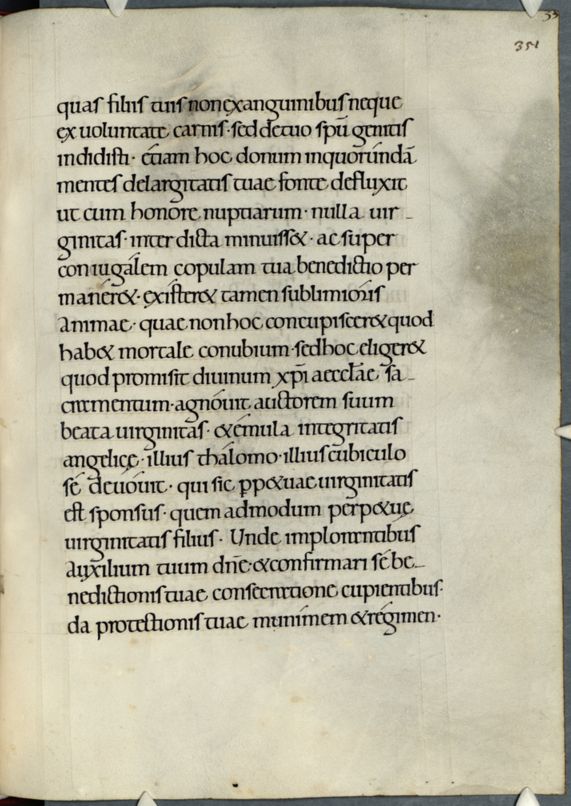 351
quas filiis tuis non exanguinibus neque
ex uoluntate carnis· sed de tuo spū genitis
indidisti· etiam hoc donum inquorundā
mentes delargitatis tuae fonte defluxit
ut cum honore nuptiarum· nulla uir-
ginitas· inter dicta minuisset· ac super
coniugalem copulam tua benedictio per
maneret· existeret tamen sublimioris
animae· quae non hoc concupisceret quod
habet mortale conubium· sed hoc eligeret
quod promisit diuinum xp̄i aecclae sa-
cramentum· agnouit auctorem suum
beata uirginitas· et emula integritatis
angelicę· illius thalomo· illius cubiculo
se deuouit· qui sic ppetuae uirginitatis
est sponsus· quem admodum perpetuę
uirginitatis filius· Unde implorantibus
auxilium tuum dn̄e· et confirmari se be-
nedictionis tuae consecratione cupientibus·
da protectionis tuae munimem et regimen·